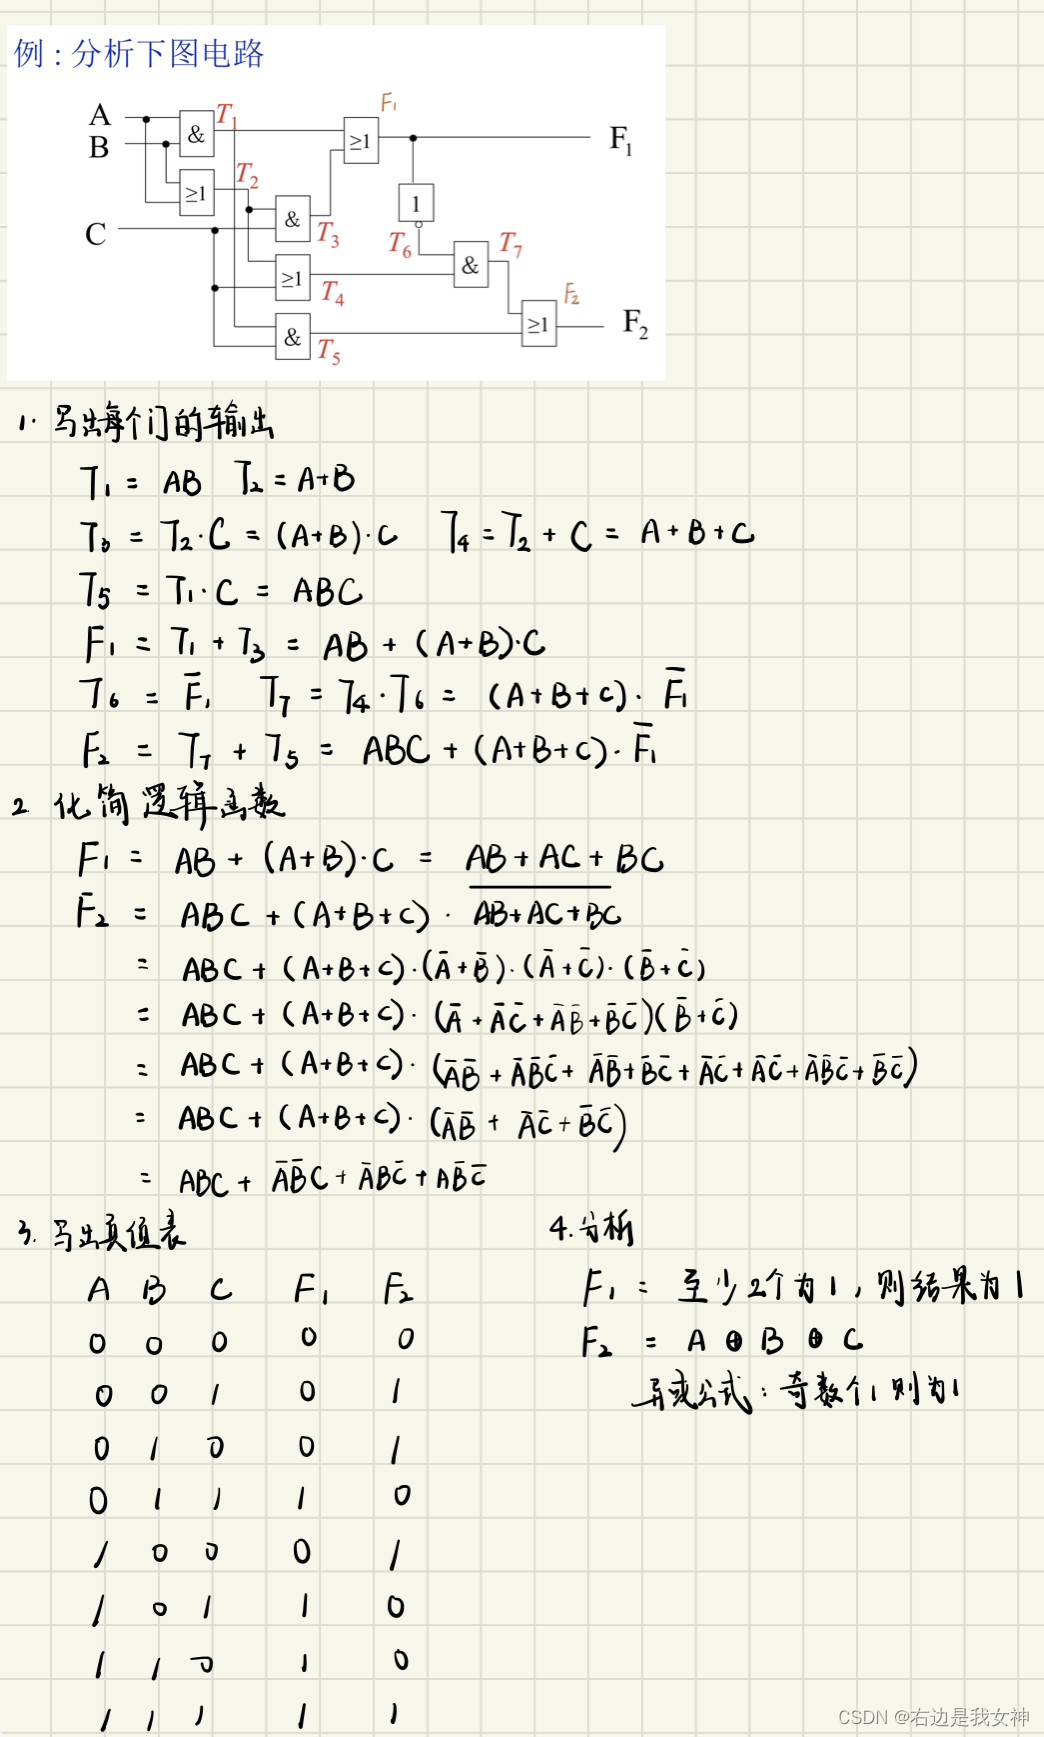 例：分析下图电路
A
B
C
&
≥1
&
≥1
&
≥1
1
&
≥1
T₁
T₂
T₃
T₄
T₅
T₆
T₇
F₁
F₁
F₂
F₂
1. 写出每个门的输出
T₁ = AB T₂ = A+B
T₃ = T₂·C = (A+B)·C T₄ = T₂ + C = A+B+C
T₅ = T₁·C = ABC
F₁ = T₁ + T₃ = AB + (A+B)·C
T₆ = F̅₁ T₇ = T₄·T₆ = (A+B+C)·F̅₁
F₂ = T₇ + T₅ = ABC + (A+B+C)·F̅₁
2. 化简逻辑函数
F₁ = AB + (A+B)·C = AB + AC + BC
F₂ = ABC + (A+B+C)·A̅B̅+̅A̅C̅+̅B̅C̅
= ABC + (A+B+C)·(A̅+B̅)·(A̅+C̅)·(B̅+C̅)
= ABC + (A+B+C)·(A̅+A̅C̅+A̅B̅+B̅C̅)(B̅+C̅)
= ABC + (A+B+C)·(A̅B̅+A̅B̅C̅+A̅B̅+B̅C̅+A̅C̅+A̅C̅+A̅B̅C̅+B̅C̅)
= ABC + (A+B+C)·(A̅B̅+A̅C̅+B̅C̅)
= ABC + A̅B̅C + A̅BC̅ + AB̅C̅
3. 写出真值表
A B C F₁ F₂
0 0 0 0 0
0 0 1 0 1
0 1 0 0 1
0 1 1 1 0
1 0 0 0 1
1 0 1 1 0
1 1 0 1 0
1 1 1 1 1
4. 分析
F₁ = 至少2个为1，则结果为1
F₂ = A ⊕ B ⊕ C
异或公式：奇数个1则为1
CSDN @右边是我女神